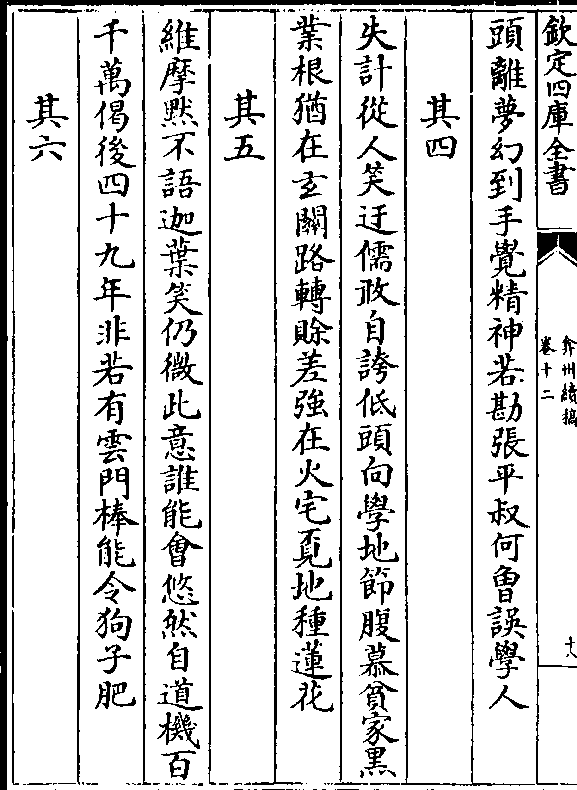 欽定四庫全書
弇州續稿
卷十二
十八
頭離夢幻到手覺精神若勘張平叔何曾誤學人
其四
失計從人笑迂儒敢自誇低頭向學地節腹慕貧家黑
業根猶在玄關路轉賒差強在火宅覓地種蓮花
其五
維摩默不語迦葉笑仍微此意誰能會悠然自道機百
千萬偈後四十九年非若有雲門棒能令狗子肥
其六